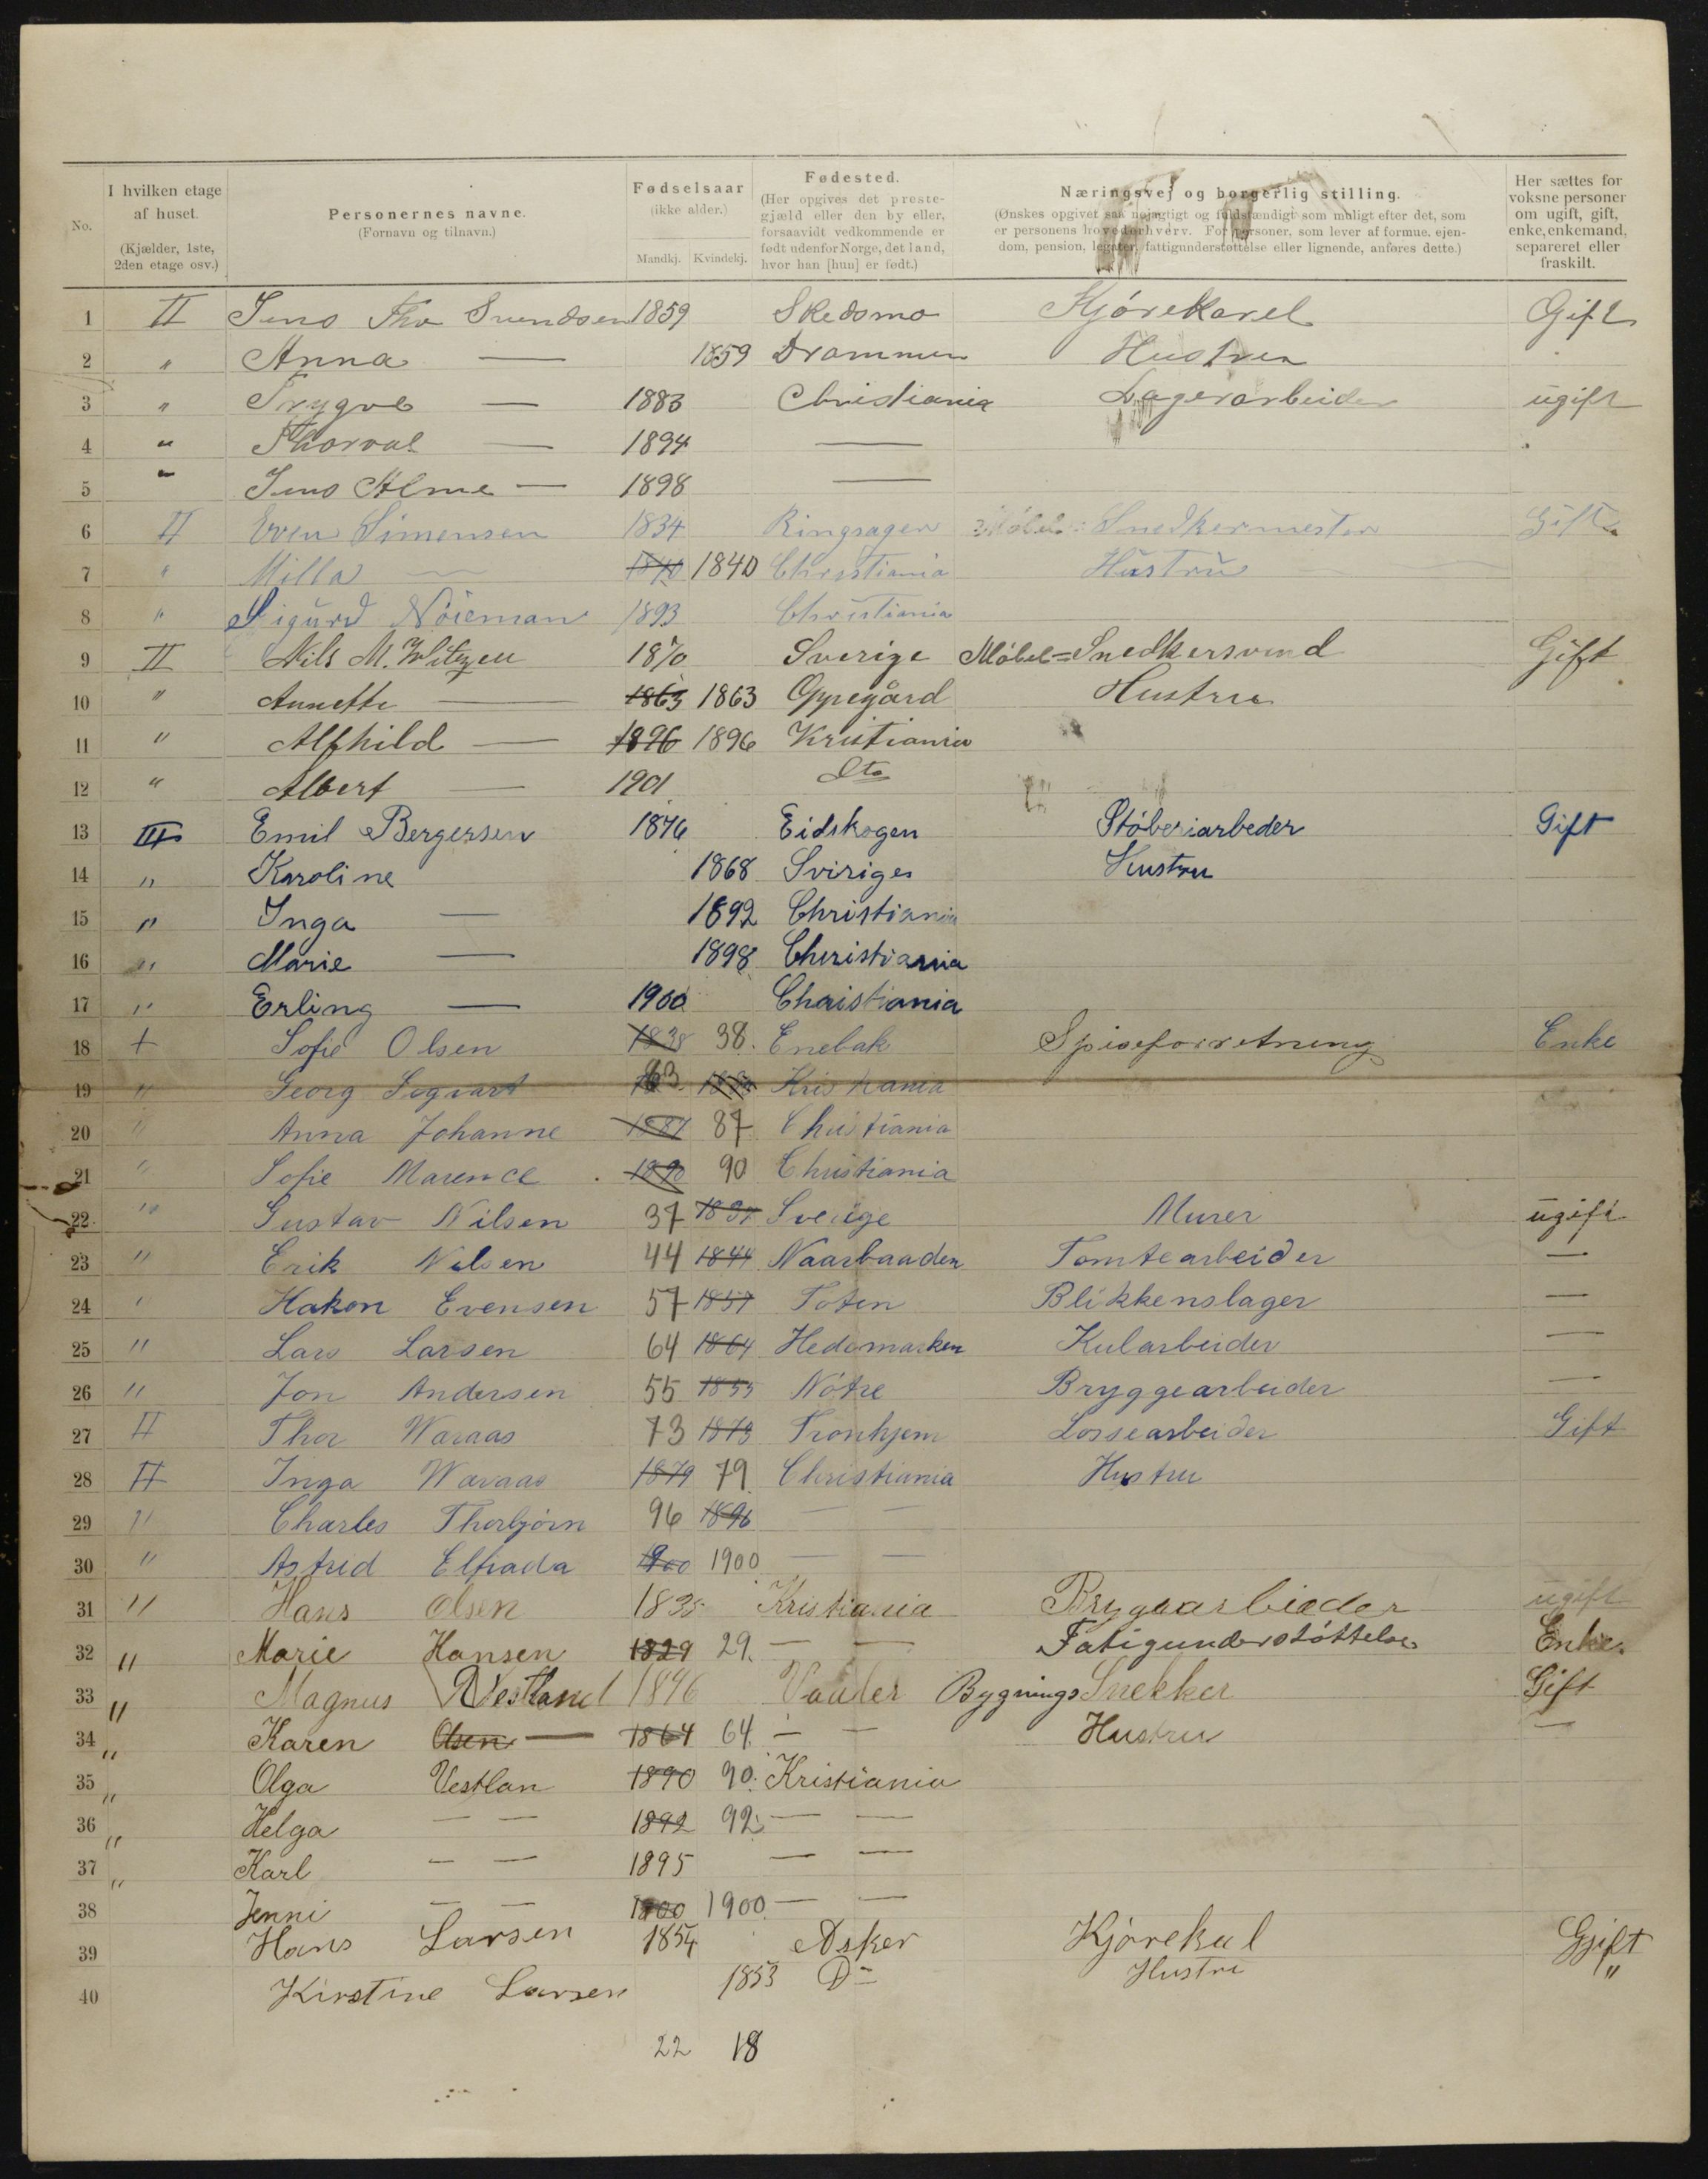 No. | I hvilken etage af huset. (Kjælder, 1ste, 2den etage osv.) | Personernes navne. (Fornavn og tilnavn.) | Fødselsaar (ikke alder.) Mandkj. Kvindekj. | Fødested. (Her opgives det prestegjæld eller den by eller, forsaavidt vedkommende er født udenfor Norge, det land, hvor han [hun] er født.) | Næringsvej og borgerlig stilling. (Ønskes opgivet saa nøjagtigt og fuldstændigt som muligt efter det, som er personens hovederhverv. For personer, som lever af formue, ejendom, pension, legater, fattigunderstøttelse eller lignende, anføres dette.) | Her sættes for voksne personer om ugift, gift, enke, enkemand, separeret eller fraskilt.
1 II Jens Tho Svendsen 1859 Skedsmo Kjørekarel Gift
2 " Anna — 1859 Drammen Hustru
3 " Trygve — 1883 Christiania Lagerarbeider ugift
4 " Thorval — 1894 —
5 " Jens Alme — 1898 —
6 II Even Simensen 1834 Ringsager Møbel: Snedkermester Gift
7 " Milla — 1840 1840 Christiania Hustru
8 " Sigurd Nöieman 1893 Christiania
9 II Nils M. 1870 Sverige Møbel=Snedkersvend Gift
10 " Annette — 1863 1863 Oppegård Hustru
11 " Alfhild — 1896 1896 Kristiania
12 " Albert — 1901 Dto
13 III Emil Bergersen 1876 Eidskogen Støberiarbeder Gift
14 " Karoline 1868 Sveriges Hustru
15 " Inga — 1892 Christiania
16 " Marie — 1898 Christiania
17 " Erling — 1900 Christiania
18 + Sofie Olsen 1838 38. Enebak Spiseforretning Enke
19 " Georg Sogvart 83 Kristiania
20 " Anna Johanne 1887 87 Christiania
21 " Sofie Marence 1890 90 Christiania
22 " Gustav Nilsen 37 1837 Sverige Murer ugift
23 " Erik Nilsen 44 1844 Naarbaaden Tomtearbeider —
24 " Hakon Evensen 57 1857 Toten Blikkenslager —
25 " Lars Larsen 64 1864 Hedemarken Kularbeider —
26 " Jon Andersen 55 1855 Nótre Bryggearbeider —
27 II Thor Waraas 73 1873 Tronhjem Lossearbeider Gift
28 II Inga Waraas 1879 79 Christiania Hustru
29 " Charles Thorbjørn 96 1896 — —
30 " Astrid Elfrada 1900 1900 — —
31 " Hans Olsen 1835 Kristiania Bryggarbieder ugift
32 " Marie Hansen 1829 29. — — Fatigunderstøttelse Enke.
33 " Magnus Westland 1876 Vanler Bygnings Snekker Gift
34 " Karen Olsen — 1864 64. — — Hustru —
35 " Olga Vestlan 1890 90. Kristiania
36 " Helga — — 1892 92. — —
37 " Karl — — 1895 — —
38 Jenni — — 1900 1900. — —
39 Hans Larsen 1854 Asker Kjørekal Gjift
40 Kirstine Larsen 1853 Do Hustru "
22 18